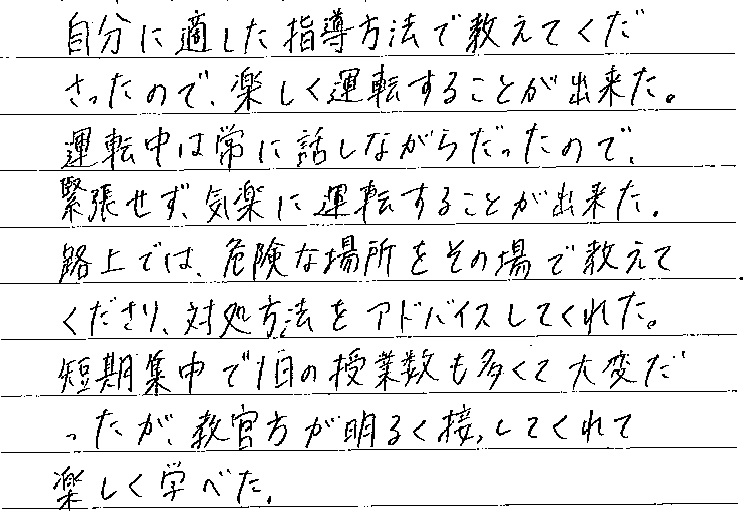 自分に適した指導方法で教えてくだ
さったので、楽しく運転することが出来た。
運転中は常に話しながらだったので、
緊張せず、気楽に運転することが出来た。
路上では、危険な場所をその場で教えて
くださり、対処方法をアドバイスしてくれた。
短期集中で1日の授業数も多くて大変だ
ったが、教官方が明るく接してくれて
楽しく学べた。